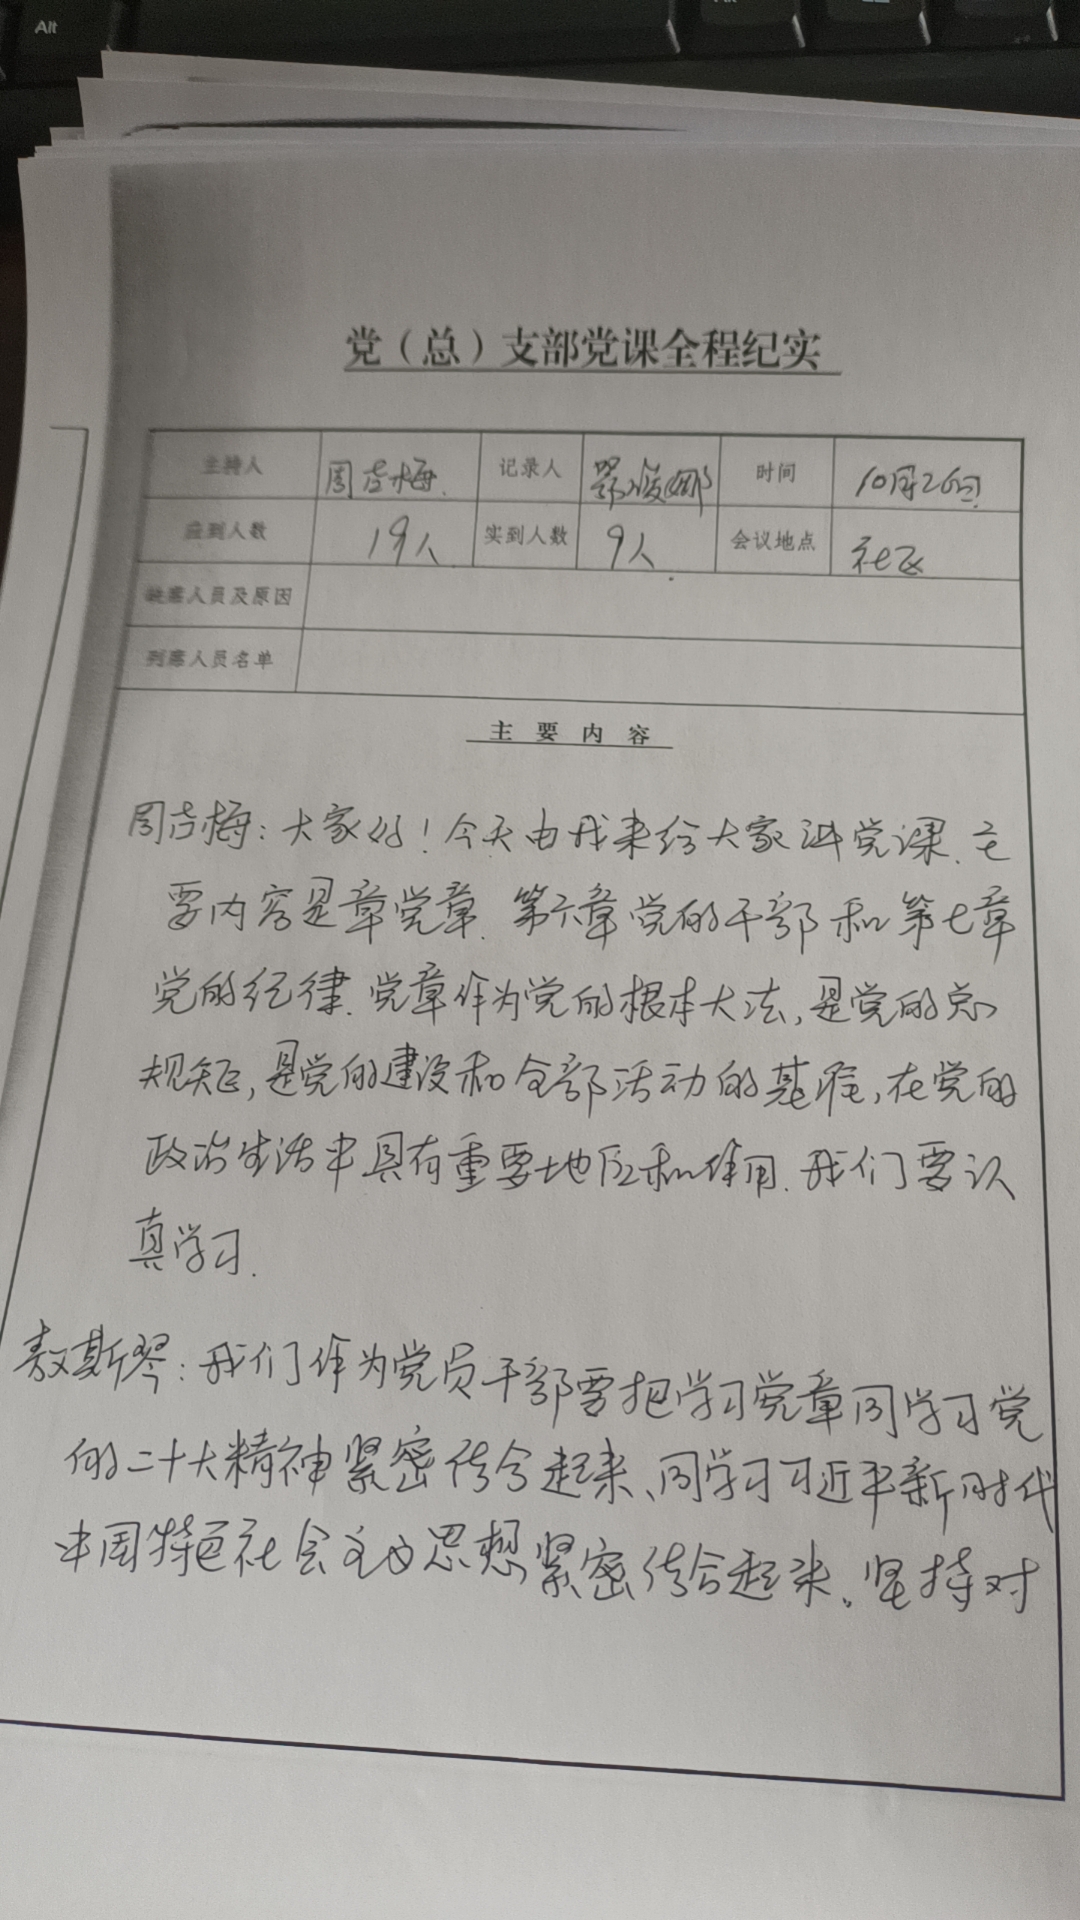 Alt
党（总）支部党课全程纪实
主持人 周吉梅 记录人 鄂俊娜 时间 10月26日
应到人数 19人 实到人数 9人 会议地点 社区
缺席人员及原因
列席人员名单
主要内容
周吉梅：大家好！今天由我来给大家讲党课.主
要内容是章党章.第六章党的干部和第七章
党的纪律.党章作为党的根本大法，是党的总
规矩，是党的建设和全部活动的基准，在党的
政治生活中具有重要地位和作用.我们要认
真学习.
敖斯琴：我们作为党员干部要把学习党章同学习党
的二十大精神紧密结合起来、同学习习近平新时代
中国特色社会主义思想紧密结合起来、坚持对